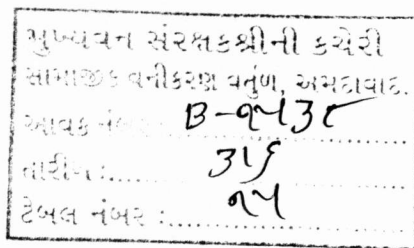 મુખ્યવન સંરક્ષકશ્રીની કચેરી
સામાજીક વનીકરણ વર્તુળ, અમદાવાદ.
આવક નંબર : B-૧૫૩૮
તારીખ : ૩૧૬
ટેબલ નંબર : ૧૫